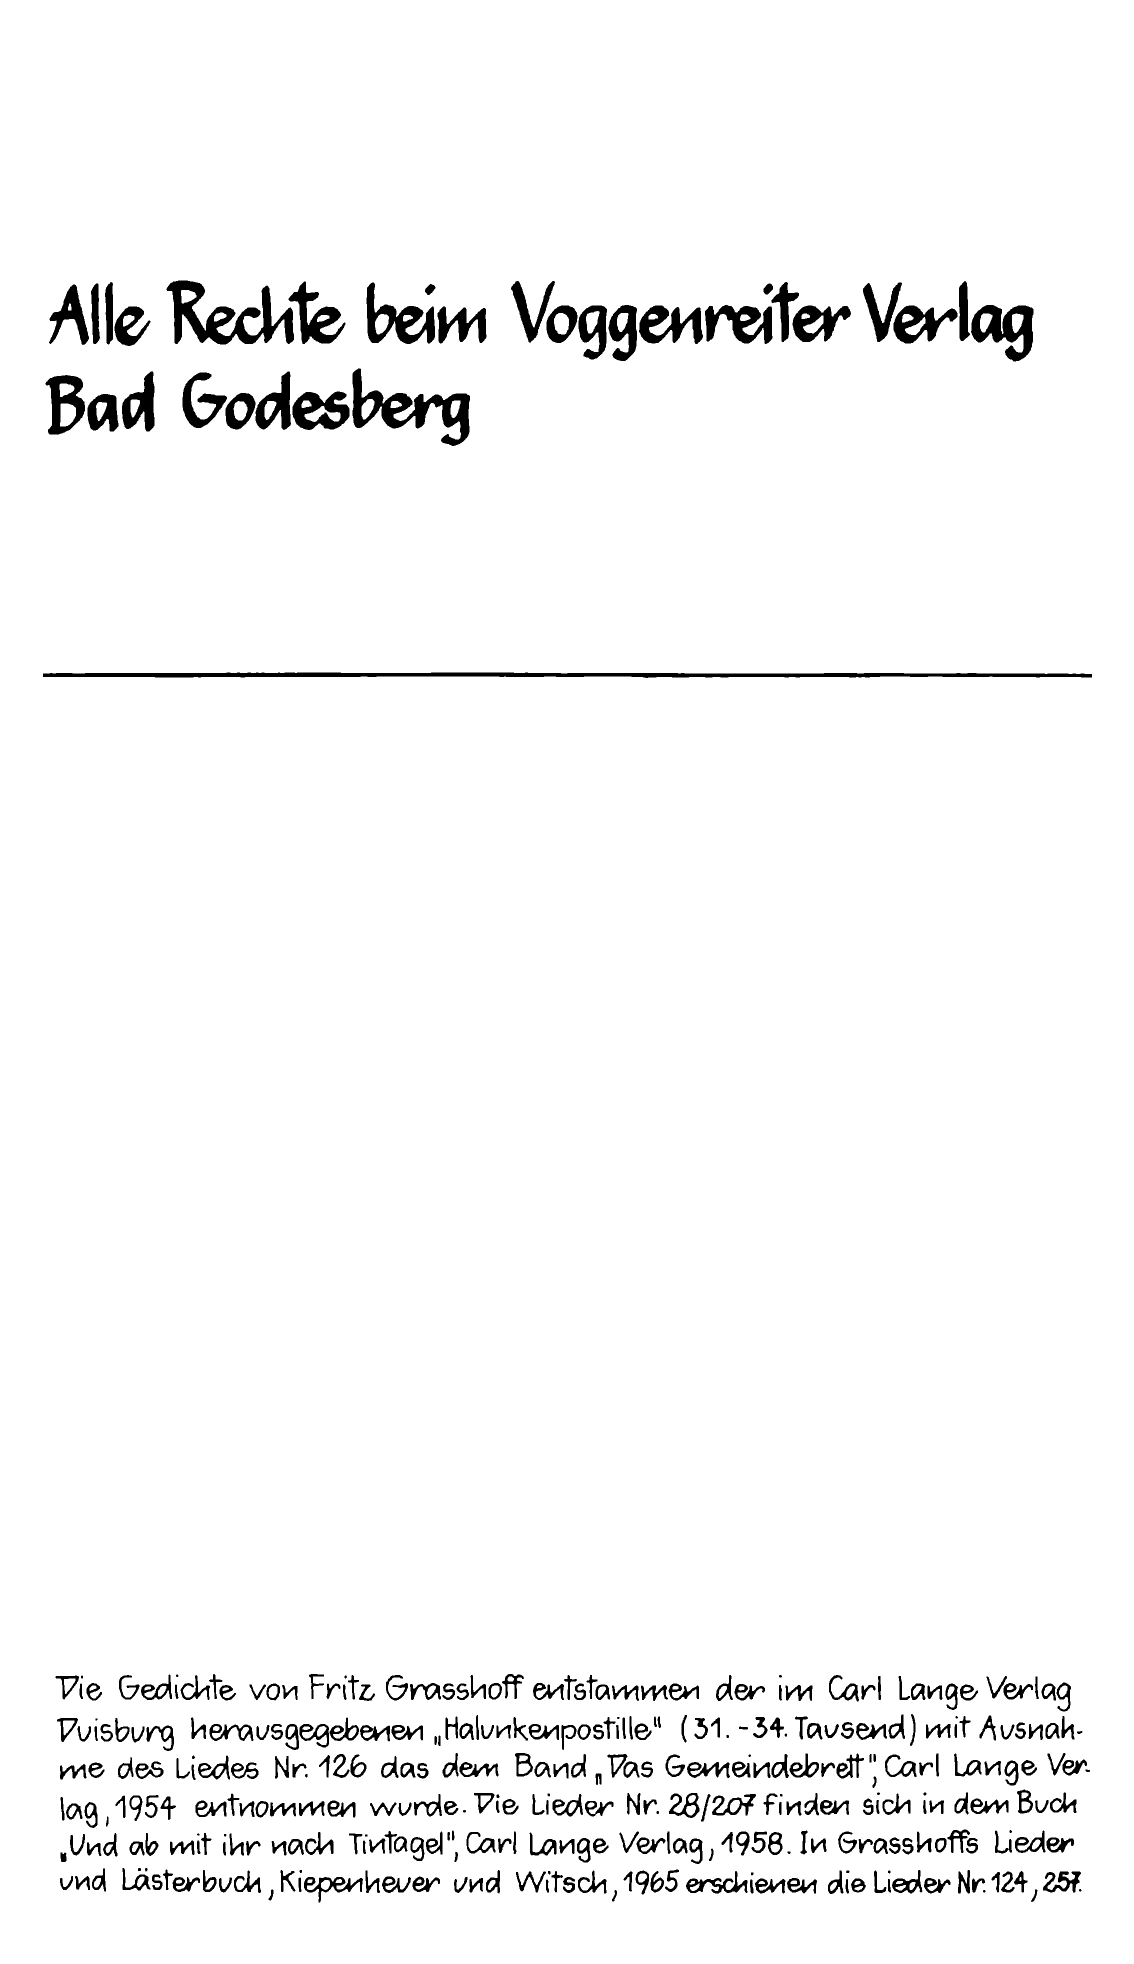 Alle Rechte beim Voggenreiter Verlag
Bad Godesberg
Die Gedichte von Fritz Grasshoff entstammen der im Carl Lange Verlag
Duisburg herausgegebenen „Halunkenpostille" (31.-34. Tausend) mit Ausnah-
me des Liedes Nr. 126 das dem Band „Das Gemeindebrett", Carl Lange Ver-
lag, 1954 entnommen wurde. Die Lieder Nr. 28/207 finden sich in dem Buch
„Und ab mit ihr nach Tintagel", Carl Lange Verlag, 1958. In Grasshoffs Lieder
und Lästerbuch, Kiepenheuer und Witsch, 1965 erschienen die Lieder Nr. 124, 257.